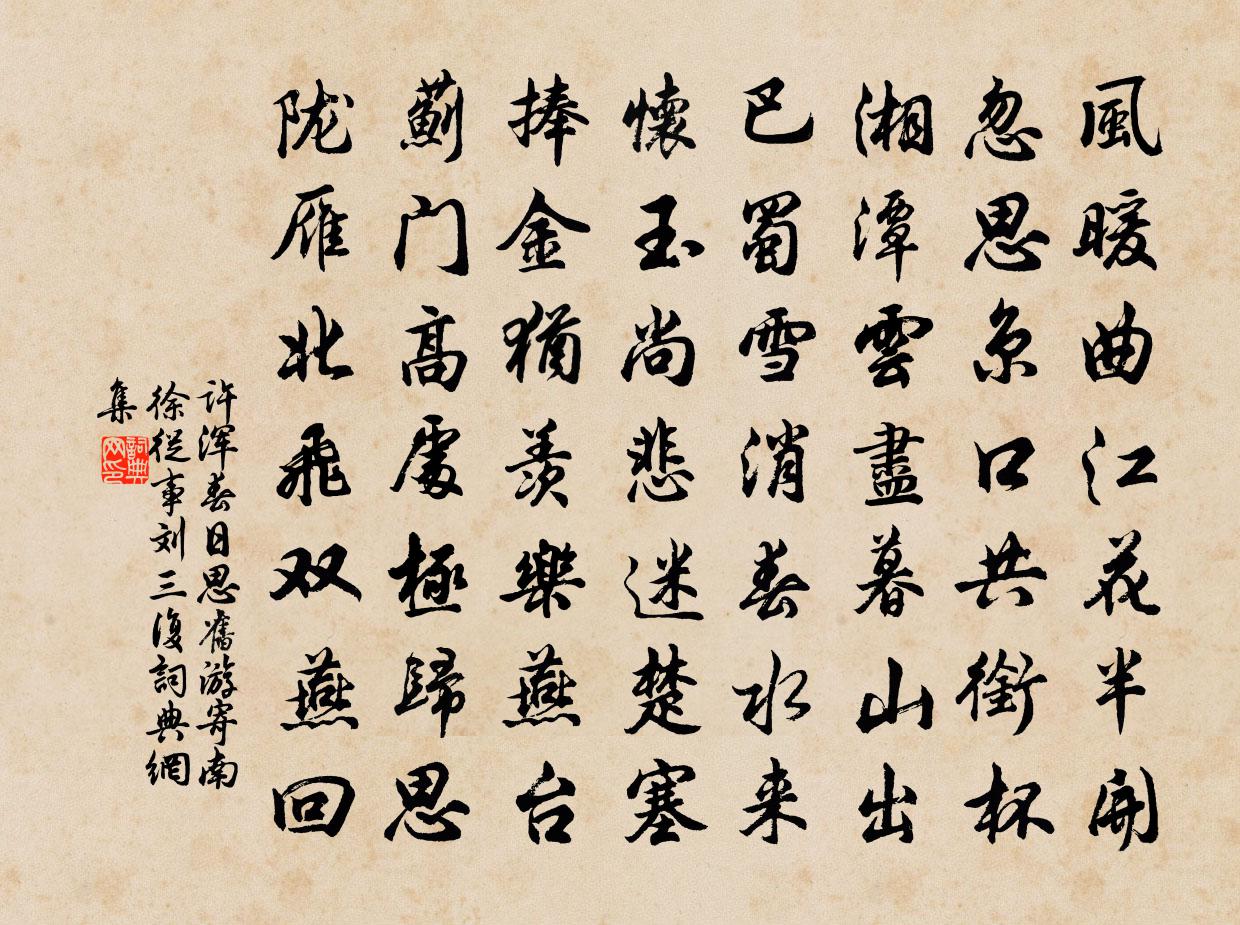 風暖曲江花半開
忽思京口共銜杯
湘潭雲盡暮山出
巴蜀雪消春水来
懷玉尚悲迷楚塞
捧金猶羡樂燕台
薊门高處極歸思
陇雁北飛双燕回
许浑春日思舊游寄南
徐從事刘三復詞典網
集
詞典网印